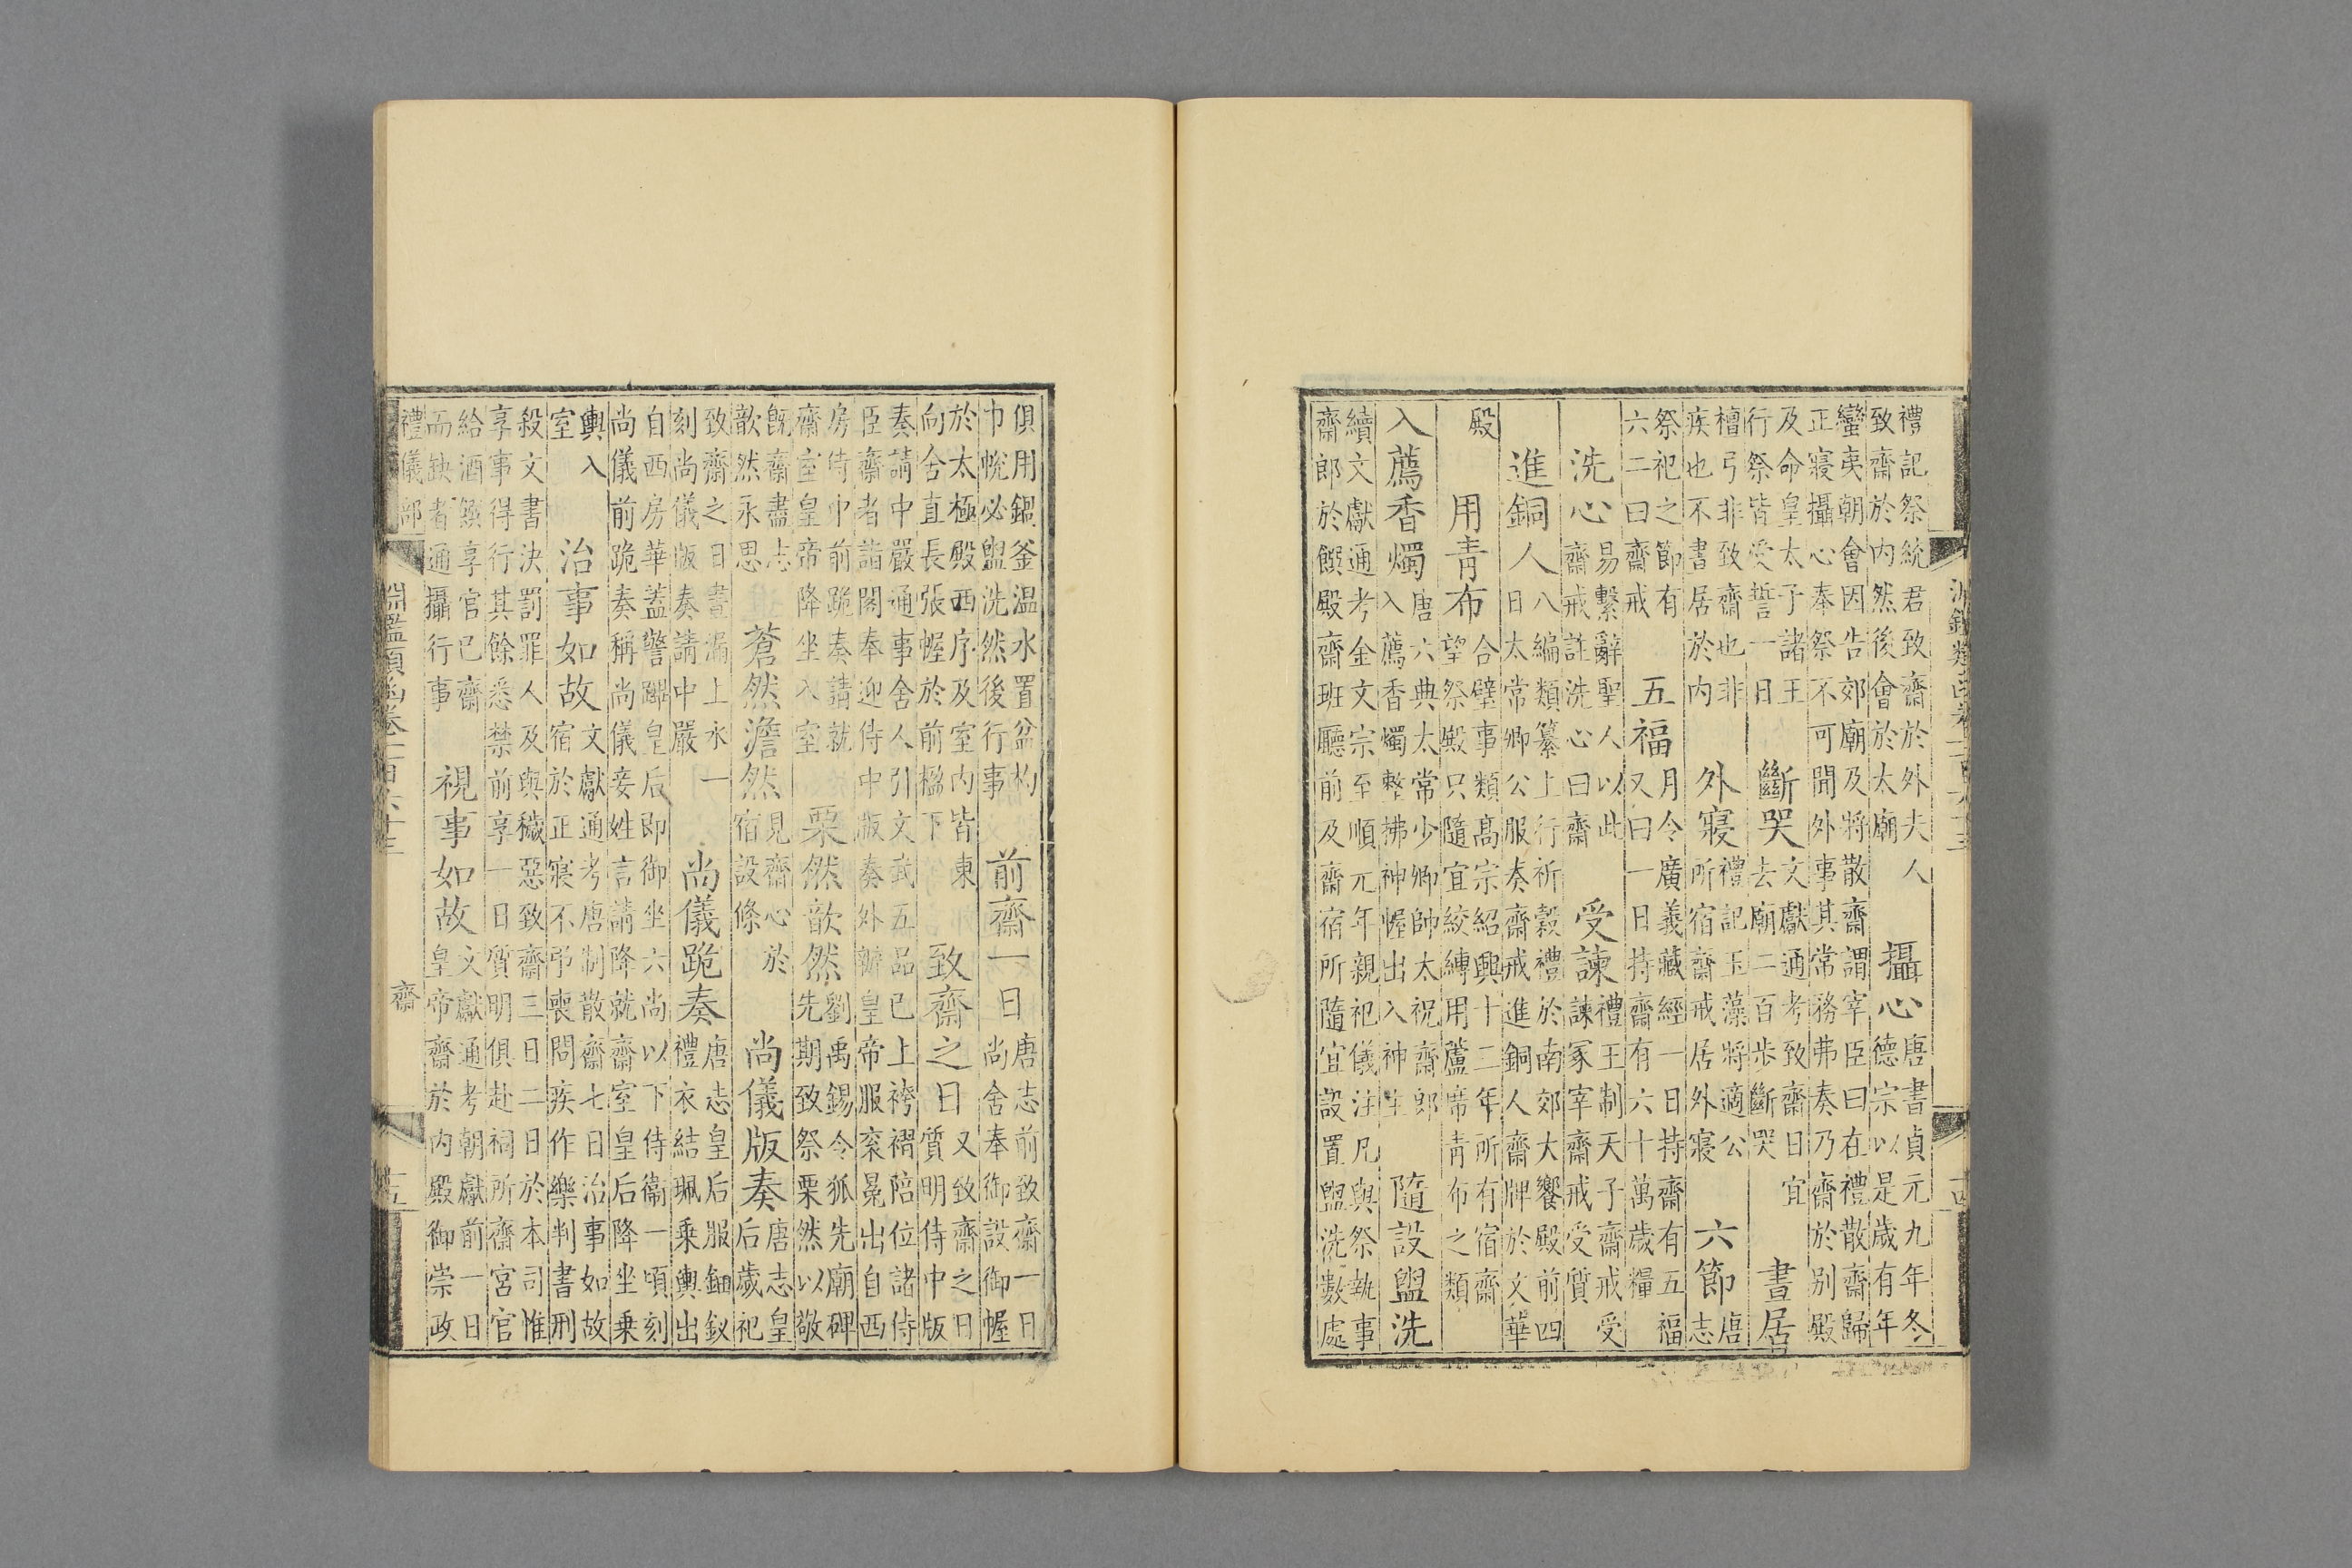 淵鑑類函卷一百六十三 十四
禮記祭統君致齋於外夫人致齋於內然後會於太廟 攝心 唐書貞元九年冬德宗以是歲有年
蠻夷朝會因告郊廟及將散齋謂宰臣曰在禮散齋歸正寢攝心奉祭不可聞外事其常務弗奏乃齋於別殿
及命皇太子諸王行祭皆受誓一日 斷哭 文獻通考致齋日宜去廟二百步斷哭 晝居
檀弓非致齋也非疾也不書居於內 外寢 禮記玉藻將適公所宿齋戒居外寢 六節 唐志
祭祀之節有六二曰齋戒 五福 月令廣義藏經一日持齋有五福又曰一日持齋有六十萬歲糧
洗心 易繫辭聖人以此齋戒註洗心曰齋 受諫 禮王制天子齋戒受諫冢宰齋戒受質
進銅人 八編類纂上行祈穀禮於南郊大饗殿前四日太常卿公服奏齋戒進銅人齋牌於文華
殿 用青布 合璧事類高宗紹興十二年所有宿齋望祭殿只隨宜絞縛用蘆席青布之類
入薦香燭 唐六典太常少卿帥太祝齋郎入薦香燭整拂神幄出入神主 隨設盥洗
續文獻通考金文宗至順元年親祀儀注凡與祭執事齋郎於饌殿齋班廳前及齋宿所隨宜設置盥洗數處
俱用鍋釜温水置盆杓巾帨必盥洗然後行事 前齋一日 唐志前致齋一日尚舍奉御設御幄
於太極殿西序及室內皆東向舍直長張幄於前楹下 致齋之日 又致齋之日質明侍中版
奏請中嚴通事舍人引文武五品已上袴褶陪位諸侍臣齋者詣閤奉迎侍中版奏外辦皇帝服衮冕出自西
房侍中前跪奏請就齋室皇帝降坐入室 栗然歆然 劉禹錫令狐先廟碑先期致祭栗然以敬
既齋盡志歆然永思 蒼然澹然 見齋心於宿設條 尚儀版奏 唐志皇后歲祀
致齋之日晝漏上水一刻尚儀版奏請中嚴 尚儀跪奏 唐志皇后服鈿釵禮衣結珮乗輿出
自西房華蓋警蹕皇后即御坐六尚以下侍衞一頃刻尚儀前跪奏稱尚儀妾姓言請降就齋室皇后降坐乗
輿入室 治事如故 文獻通考唐制散齋七日治事如故宿於正寢不弔喪問疾作樂判書刑
殺文書決罰罪人及與穢惡致齋三日二日於本司惟享事得行其餘悉禁前享一日質明俱赴祠所齋宮官
給酒饌享官已齋而缺者通攝行事 視事如故 文獻通考朝獻前一日皇帝齋於內殿御崇政
禮儀部 淵鑑類函卷一百六十三 齋 十五